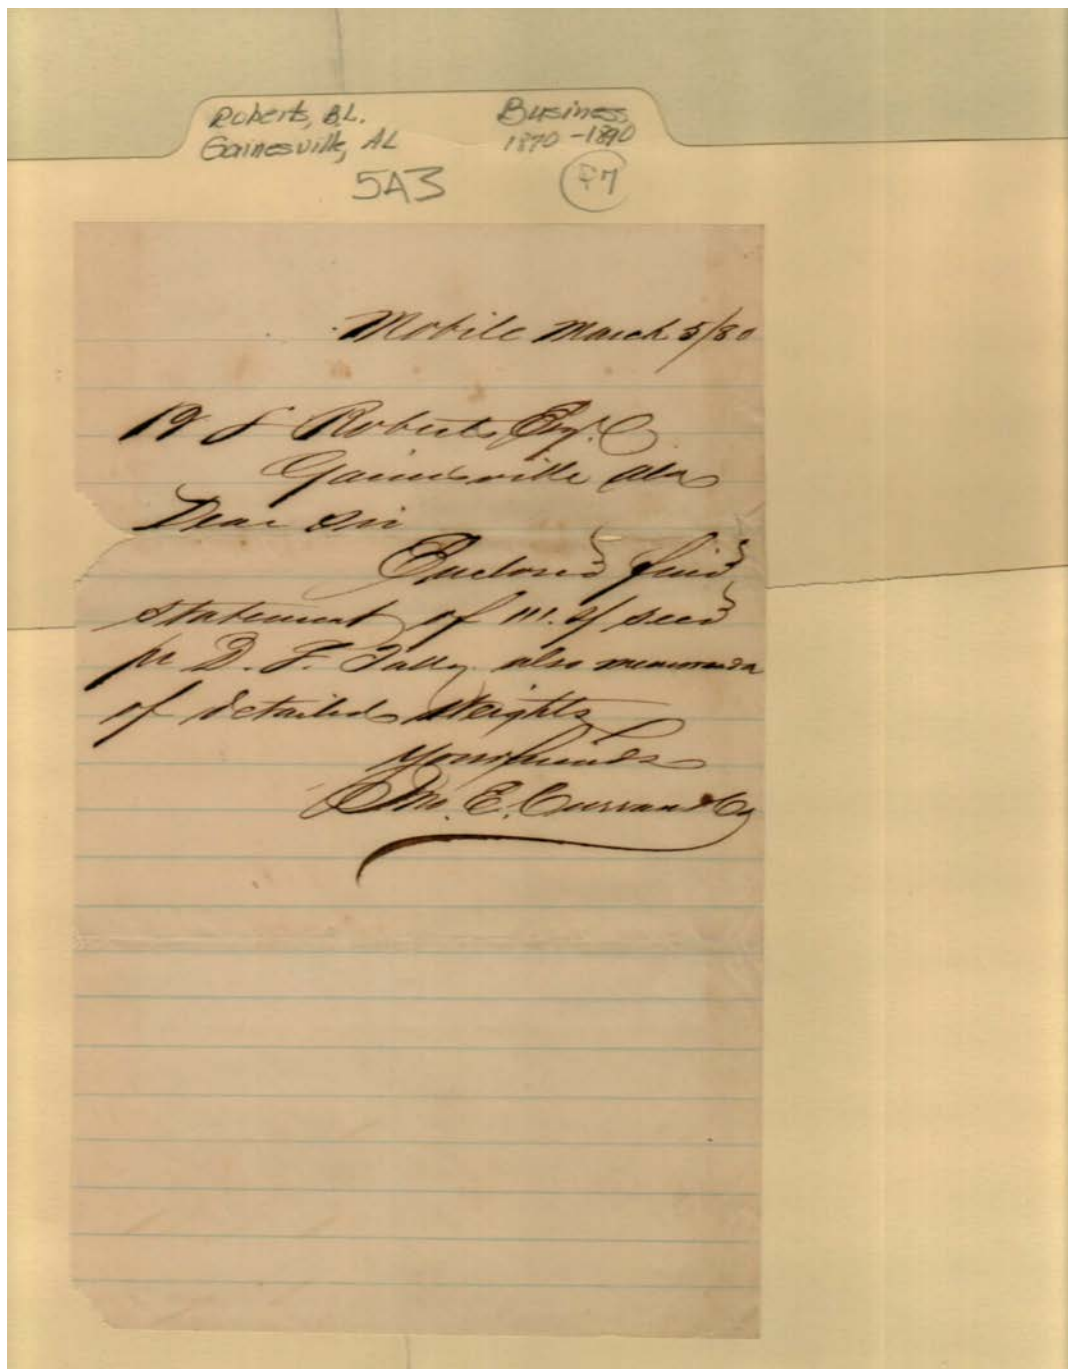 Roberts, B.L. Business
Gainesville, AL 1870-1890
5A3 F7
Mobile March 5/80
B L Roberts Esq.
Gainesville Ala
Dear Sir
Enclosed find
statement of seed
pr D. F. Tally also memoranda
of detailed Weights
Your friends
Jno. E. Curran & Co